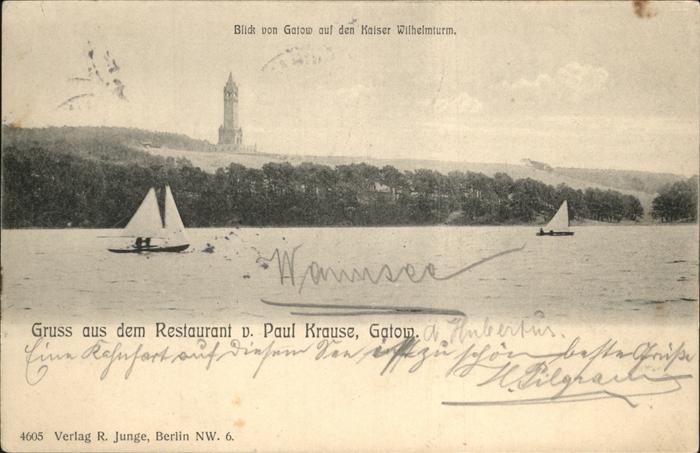 Blick von Gatow auf den Kaiser Wilhelmturm.
Wannsee
Gruss aus dem Restaurant v. Paul Krause, Gatow. d. Hubertus.
Eine Kahnfart auf diesem See ist zu schön beste Grüße
H. Pilgram
4605 Verlag R. Junge, Berlin NW. 6.